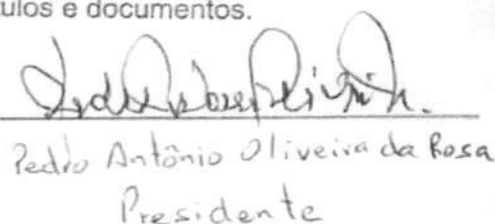 ulos e documentos.
Pedro Antônio Oliveira da Rosa
Presidente